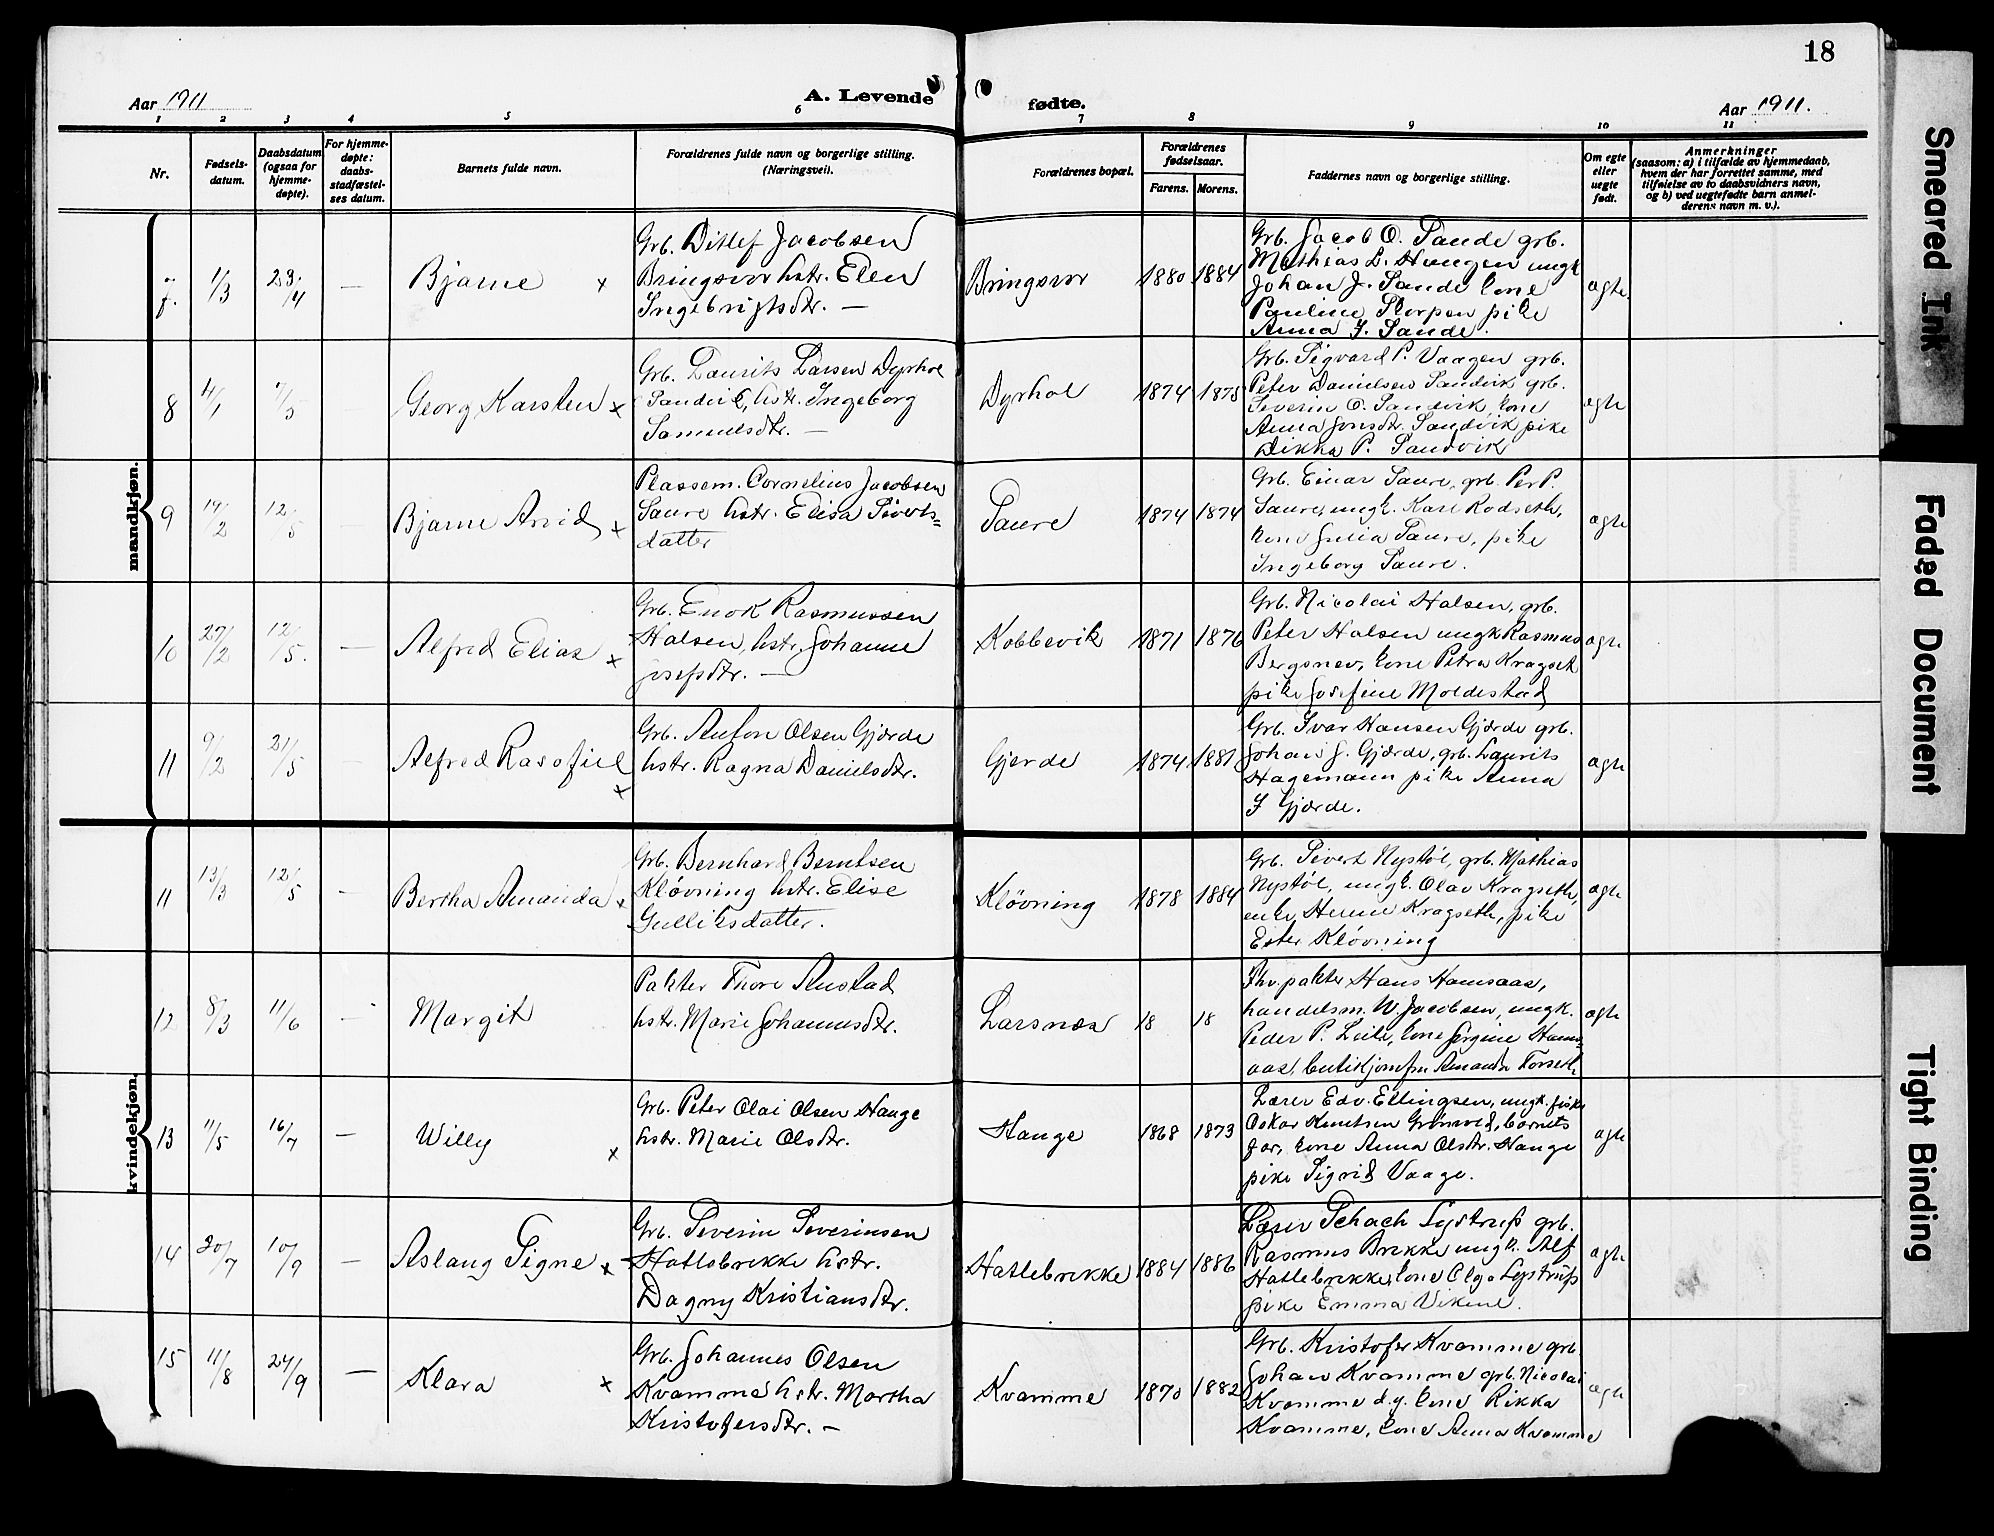 18
Aar 1911
A. Levende
fødte.
Aar 1911.
1 2 3 4 5 6 7 8 9 10 11
Nr.
Fødsels-
datum.
Daabsdatum
(ogsaa for
hjemme-
døpte).
For hjemme-
døpte:
daabs-
stadfæstel-
ses datum.
Barnets fulde navn.
Forældrenes fulde navn og borgerlige stilling.
(Næringsvei).
Forældrenes bopæl.
Forældrenes
fødselsaar.
Farens. Morens.
Faddernes navn og borgerlige stilling.
Om egte
eller
uegte
født.
Anmerkninger
(saasom: a) i tilfælde av hjemmedaab,
hvem der har forrettet samme, med
tilføielse av to daabsvidners navn,
og b) ved uegtefødte barn anmel-
derens navn m. v.).
mandkjøn.
7. 1/3 23/4 — Bjarne x
Grb. Ditlef Jacobsen
Bringsvor hstr. Elen
Ingebrigtsdtr. —
Bringsvor 1880 1884
Grb. Jacob O. Sande grb.
Mathias L. Haugen ungk
Johan J. Sande kone
Pauline Storpen pike
Anna J. Sande.
ægte.
8 4/1 7/5 Georg Karsten x
Grb. Laurits Larsen Dyrhol
Sandvik, hstr. Ingeborg
Samuelsdtr. —
Dyrhol 1874 1875
Grb. Sigvard P. Vaagen grb.
Peter Danielsen Sandvik grb.
Severin O. Sandvik, kone
Anna Jonsdtr. Sandvik pike
Dikka P. Sandvik
ægte
9 14/2 12/5 Bjarne Arvid x
Plassem. Cornelius Jacobsen
Saure hstr. Elisa Siverts=
datter
Saure 1874 1874
Grb. Einar Saure, grb. Per P.
Saure, ungk. Karl Rodseth,
kone Julia Saure, pike
Ingeborg Saure.
ægte
10 27/2 12/5. — Alfred Elias x
Grb. Enok Rasmussen
Halsen, hstr. Johanne
Josefsdtr. —
Kobbevik 1871 1876
Grb. Nicolai Halsen, grb.
Peter Halsen ungk Rasmus
Bergsnev, kone Petra Kragset
pike Josefine Moldestad
ægte
11 9/2 21/5 Alfred Rasofiel x
Grb. Anton Olsen Gjærde
hstr. Ragna Danielsdtr.
Gjerde 1874 1881
Grb. Ivar Hansen Gjærde grb.
Johan J. Gjærde, grb. Laurits
Hagemann pike Anna
I Gjærde.
ægte
kvindekjøn.
11 13/3 12/5 — Bertha Amanda x
Grb. Bernhard Berntsen
Kløvning hstr. Elise
Gulliksdatter.
Kløvning 1878 1884
Grb. Sivert Nystøl, grb. Mathias
Nystøl, ungk. Olav Kragseth,
enke Kragseth, pike
Ester Kløvning
ægte
12 8/3 11/6 — Margit
Pakter Thore Anstad
hstr. Marie Johannesdtr.
Larsnæs 18 18
Fhv. pakter Hans Hamsaas,
handelsm. W. Jacobsen, ungk.
Peder P. Leite, kone Jørgine Hams-
aas, butikjomfru Amanda Forseth
ægte
13 11/5 16/7 — Willy x
Grb. Peter Olai Olsen Hauge
hstr. Marie Olsdtr.
Hauge 1868 1873
Lærer Edv. Ellingsen, ungk. fisker
Oskar Knutsen Grønvold, barnets
far, kone Anna Olsdtr. Hauge
pike Sigrid Vaage.
ægte
14 20/7 10/9 — Aslaug Signe x
Grb. Severin Severinsen
Hatlebrekke hstr.
Dagny Kristiansdtr.
Hatlebrekke 1884 1886
Lærer Schach Lystrup grb.
Rasmus Brekke ungk. Alf
Hatlebrekke, kone Olga Lystrup
pike Emma Vikene.
ægte
15 11/8 24/9 — Klara x
Grb. Johannes Olsen
Kvamme hstr. Martha
Kristofersdtr. —
Kvamme 1870 1882
Grb. Kristofer Kvamme grb.
Johan Kvamme grb. Nicolai
Kvamme d.y. kone Rikka
Kvamme, kone Anna Kvamme
ægte
Smeared Ink
Faded Document
Tight Binding